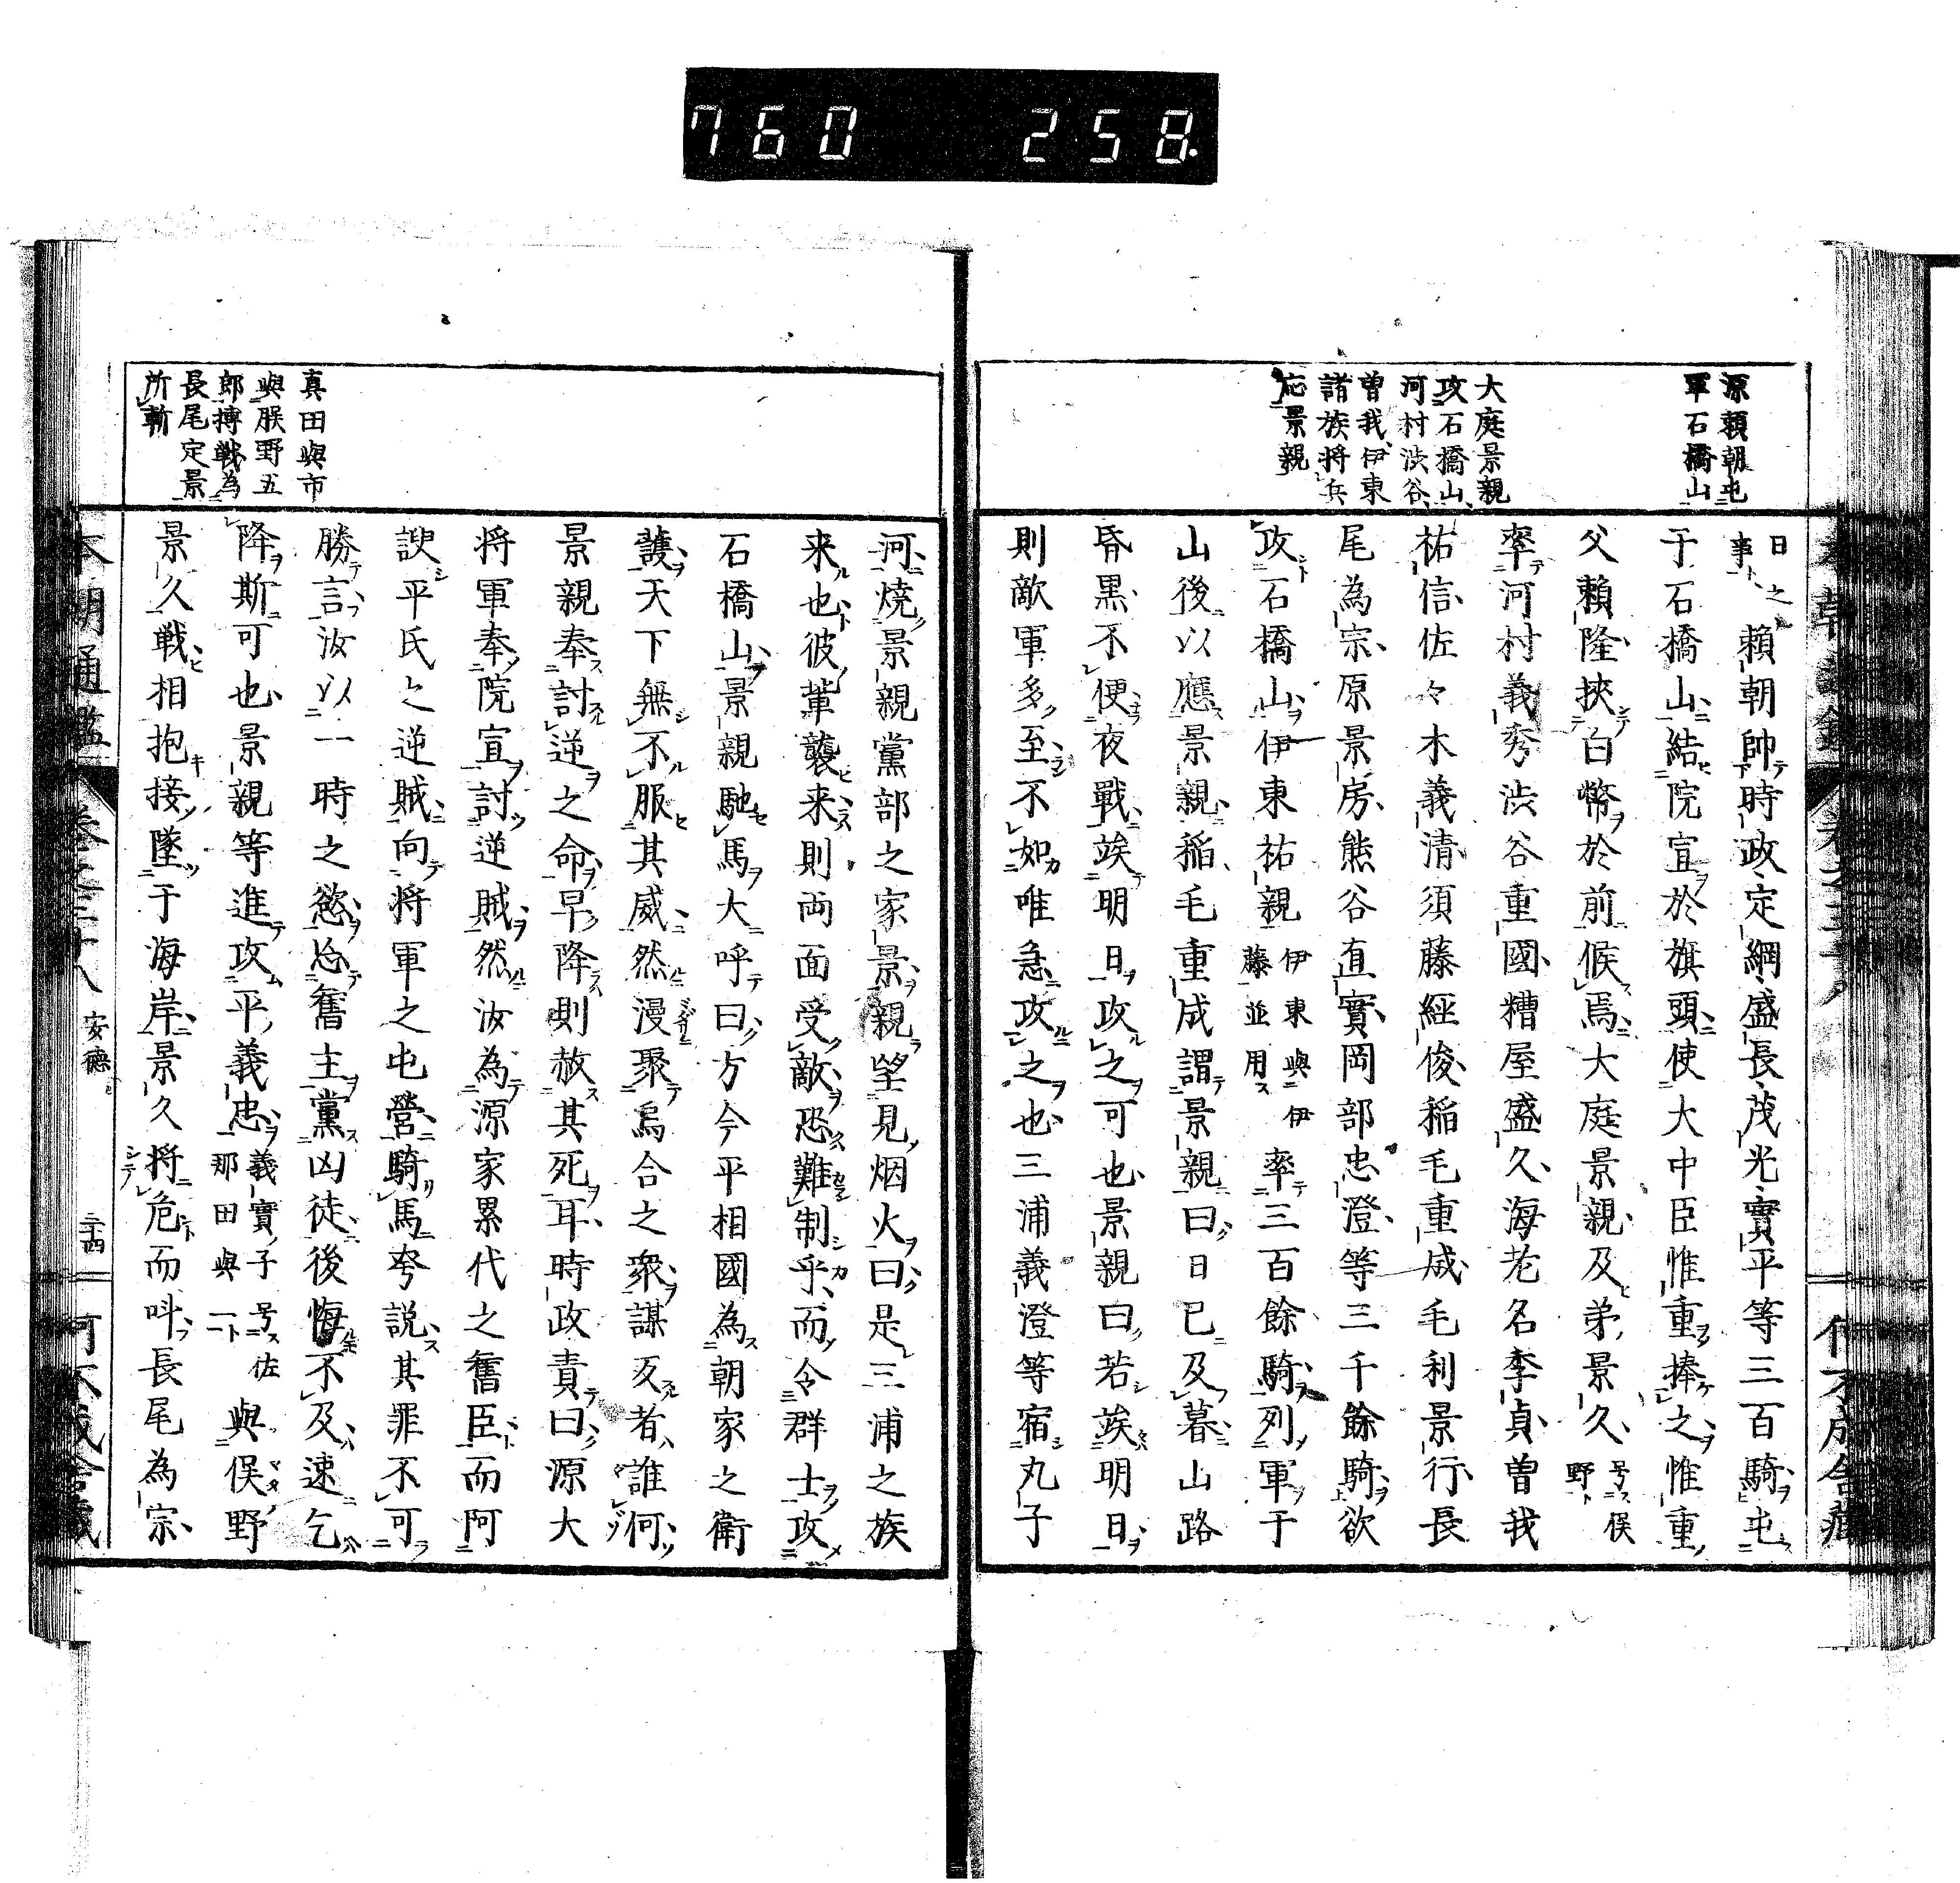 760 258.
源頼朝屯
軍石橋山
大庭景親
攻石橋山
河村渋谷
曽我伊東
諸族将兵
応景親
日之
事
頼朝帥時政定綱盛長茂光實平等三百騎屯
于石橋山結院宣於旗頭使大中臣惟重捧之惟重
父頼隆挾白幣於前候焉大庭景親及弟景久号俣野
率河村義秀渋谷重國糟屋盛久海老名季貞曽我
祐信佐々木義清須藤経俊稲毛重成毛利景行長
尾為宗原景房熊谷直實岡部忠澄等三千餘騎欲
攻石橋山伊東祐親伊東與伊藤並用率三百餘騎列軍于
山後以應景親稲毛重成謂景親曰日已及暮山路
昏黒不便夜戰竢明日攻之可也景親曰若竢明日
則敵軍多至不如唯急攻之也三浦義澄等宿丸子
河燒景親黨部之家景親望見烟火曰是三浦之族
来也彼輩襲来則両面受敵恐難制乎而令群士攻
石橋山景親馳馬大呼曰方今平相國為朝家之衛
護天下無不服其威然漫聚烏合之衆謀反者誰何
景親奉討逆之命早降則赦其死耳時政責曰源大
将軍奉院宣討逆賊然汝為源家累代之舊臣而阿
諛平氏之逆賊向将軍之屯營騎馬夸説其罪不可
勝言汝以一時之慾忘舊主黨凶徒後悔不及速乞
降斯可也景親等進攻平義忠義實子号佐那田與一與俣野
景久戦相抱接墜于海岸景久将危而呌長尾為宗
真田與市
與俣野五
郎搏戦為
長尾定景
所斬
本朝通鑑 卷之三十八 安德 二十四 何不成舎蔵